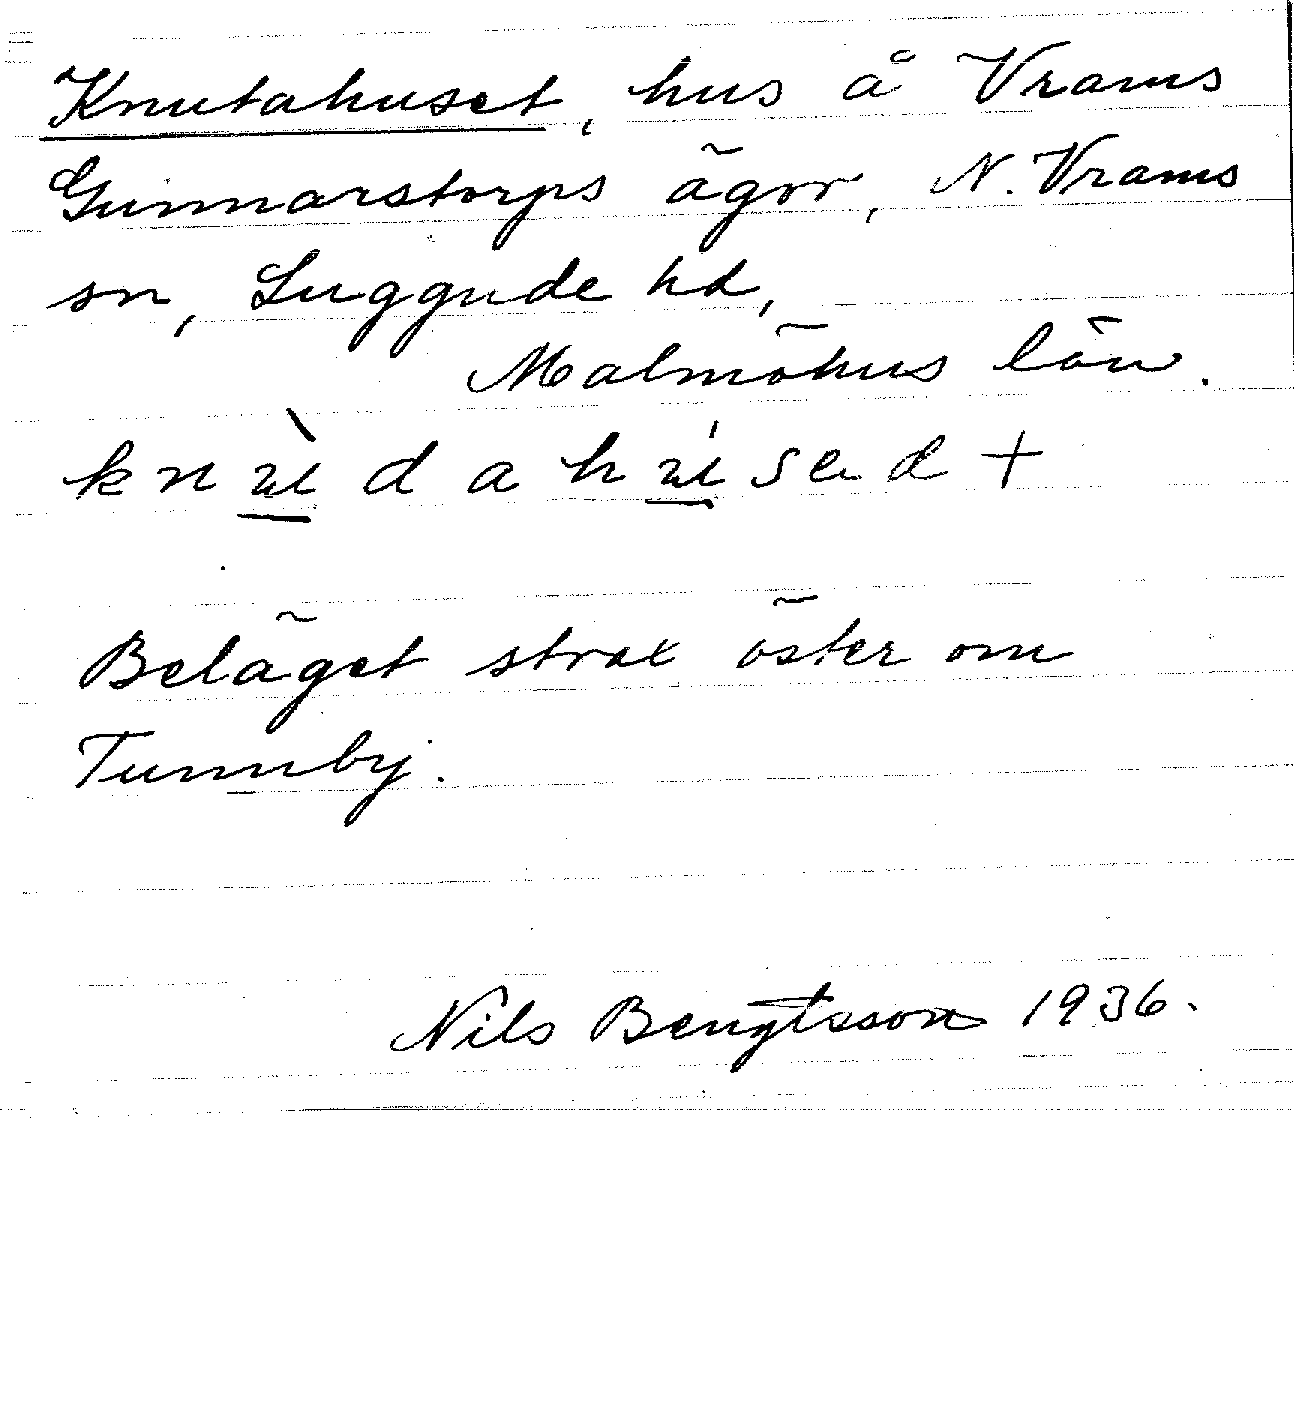 Knutahuset, hus å Vrams
Gunnarstorps ägor, N. Vrams
sn, Luggude hd,
Malmöhus län.
knùdahúsed +
Beläget strax öster om
Tunnby.
Nils Bengtsson 1936.